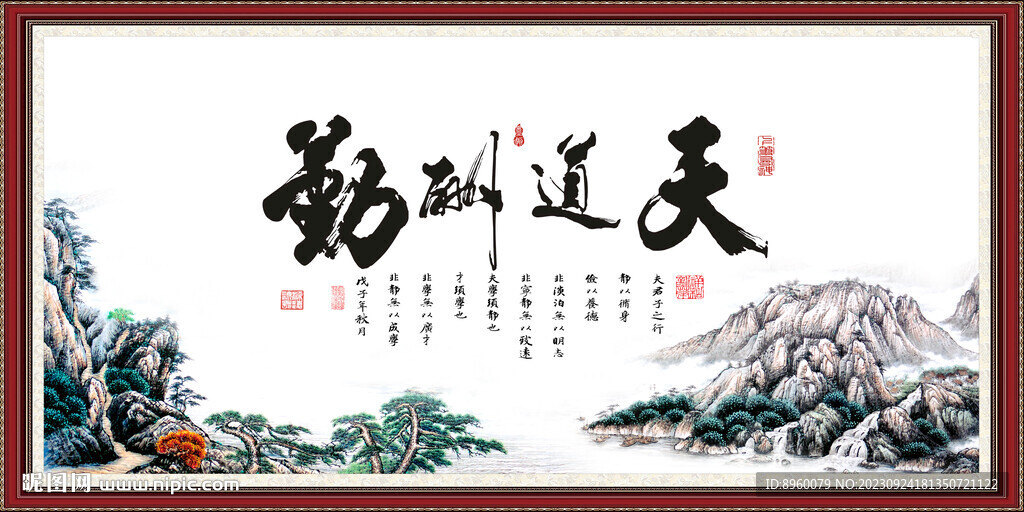 天道酬勤
夫君子之行
靜以脩身
儉以養德
非淡泊無以明志
非寧靜無以致遠
夫學須靜也
才須學也
非學無以廣才
非靜無以成學
戊子年秋月
昵图网 www.nipic.com
ID:8960079 NO:20230924181350721122